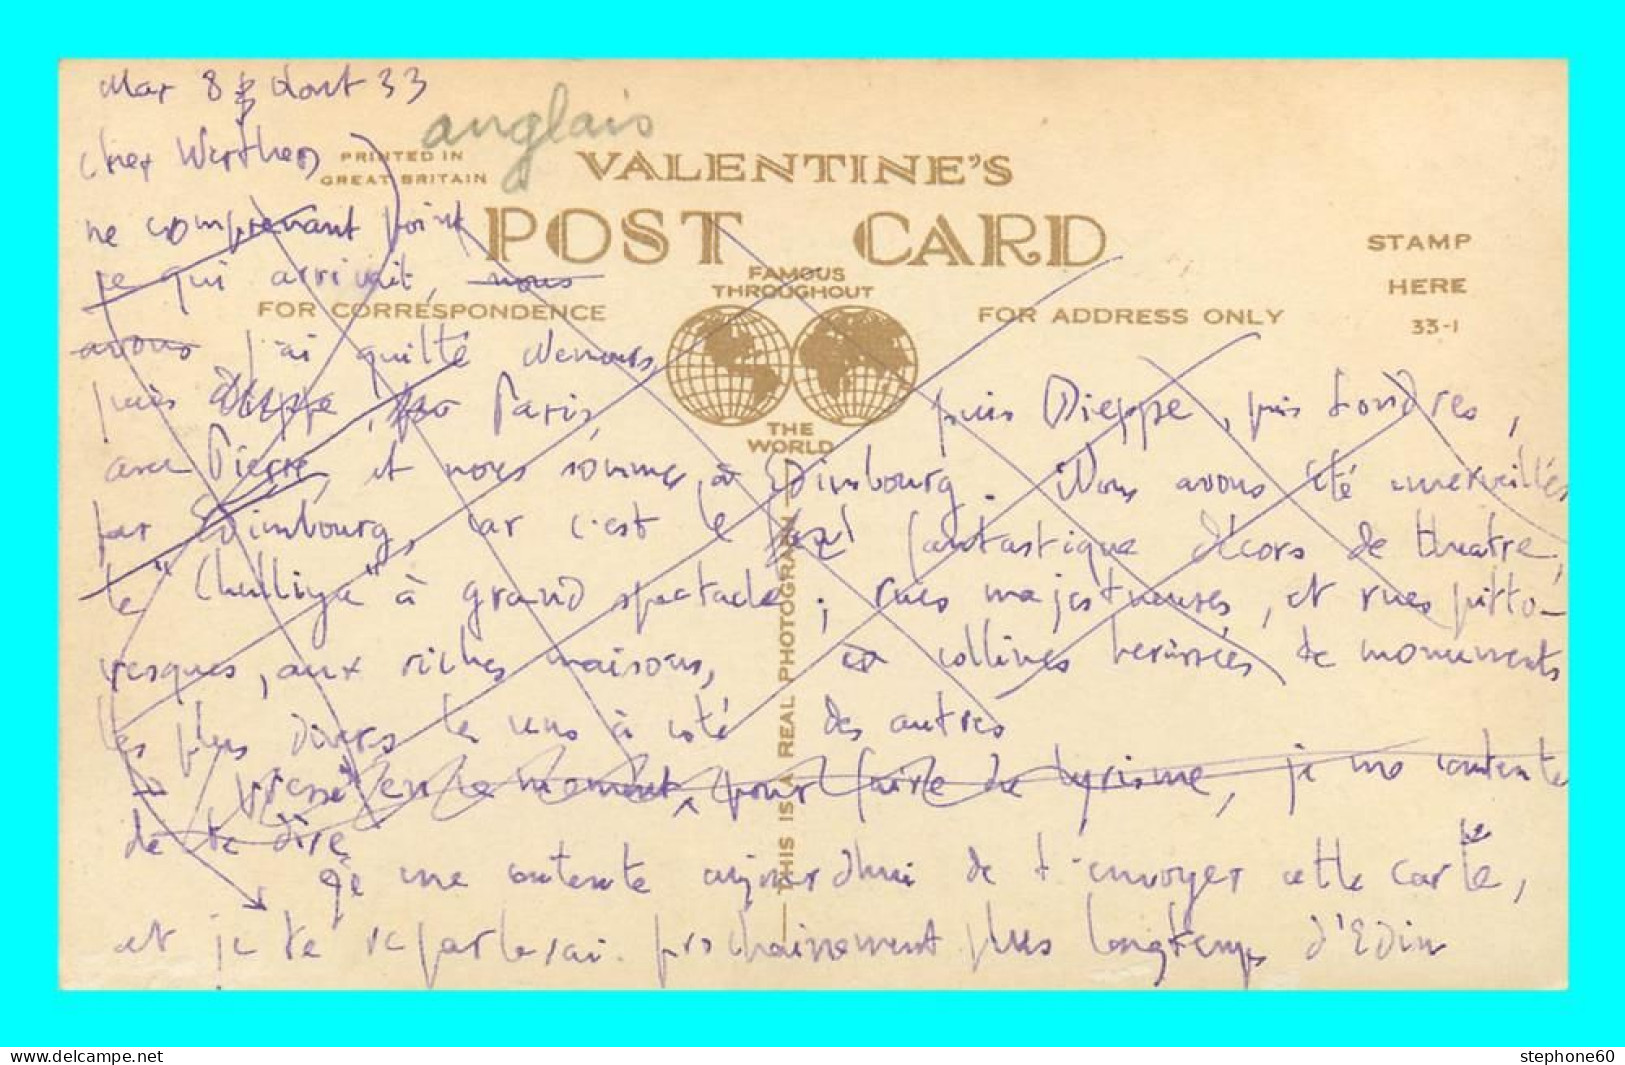 Mar 8 Aout 33
anglais
Cher Werther
PRINTED IN
GREAT BRITAIN
VALENTINE'S
ne comprenant point
POST CARD
STAMP
HERE
33-1
ce qui arrivait, nous
FAMOUS
THROUGHOUT
FOR CORRESPONDENCE
FOR ADDRESS ONLY
avons j'ai quitté Nemours
puis Dieppe, Paris, puis Dieppe, puis Londres,
THE
WORLD
avec Pierre, et nous sommes à Edimbourg. Nous avons été émerveillés
par Edimbourg, car c'est le fantastique décors de théatre,
le " " à grand spectacle ; rues majestueuses, et rues pitto-
resques, aux riches maisons, collines herissées de monuments
les plus divers les uns à coté des autres
THIS IS A REAL PHOTOGRAPH
pressé en ce moment pour faire du lyrisme, je me contente
de te dire
Je me contente aujourd'hui de t'envoyer cette carte,
et je te reparlerai prochainement plus longtemps d'Edin
www.delcampe.net
stephone60